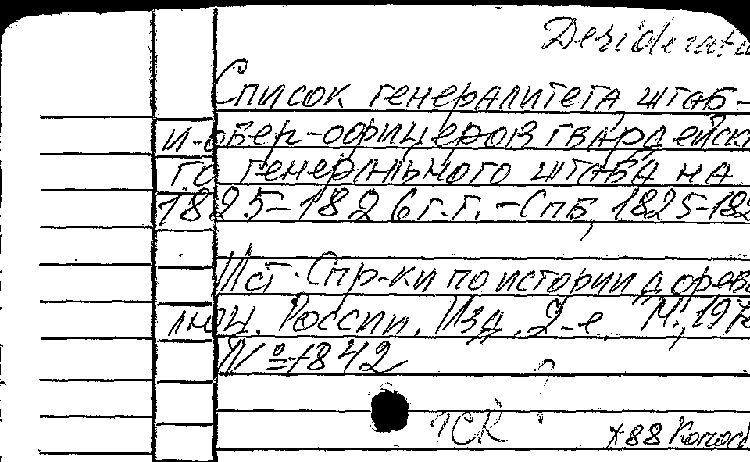 Desiderata
Список генералитета, штаб-
и-обер-офицеров гвардейско
го генерального штаба на
1825-1826 г.г. – Спб, 1825-182
Ист. Спр-ки по истории дорев
люц. России. Изд. 2-е М., 197
№ 1842
ГСК